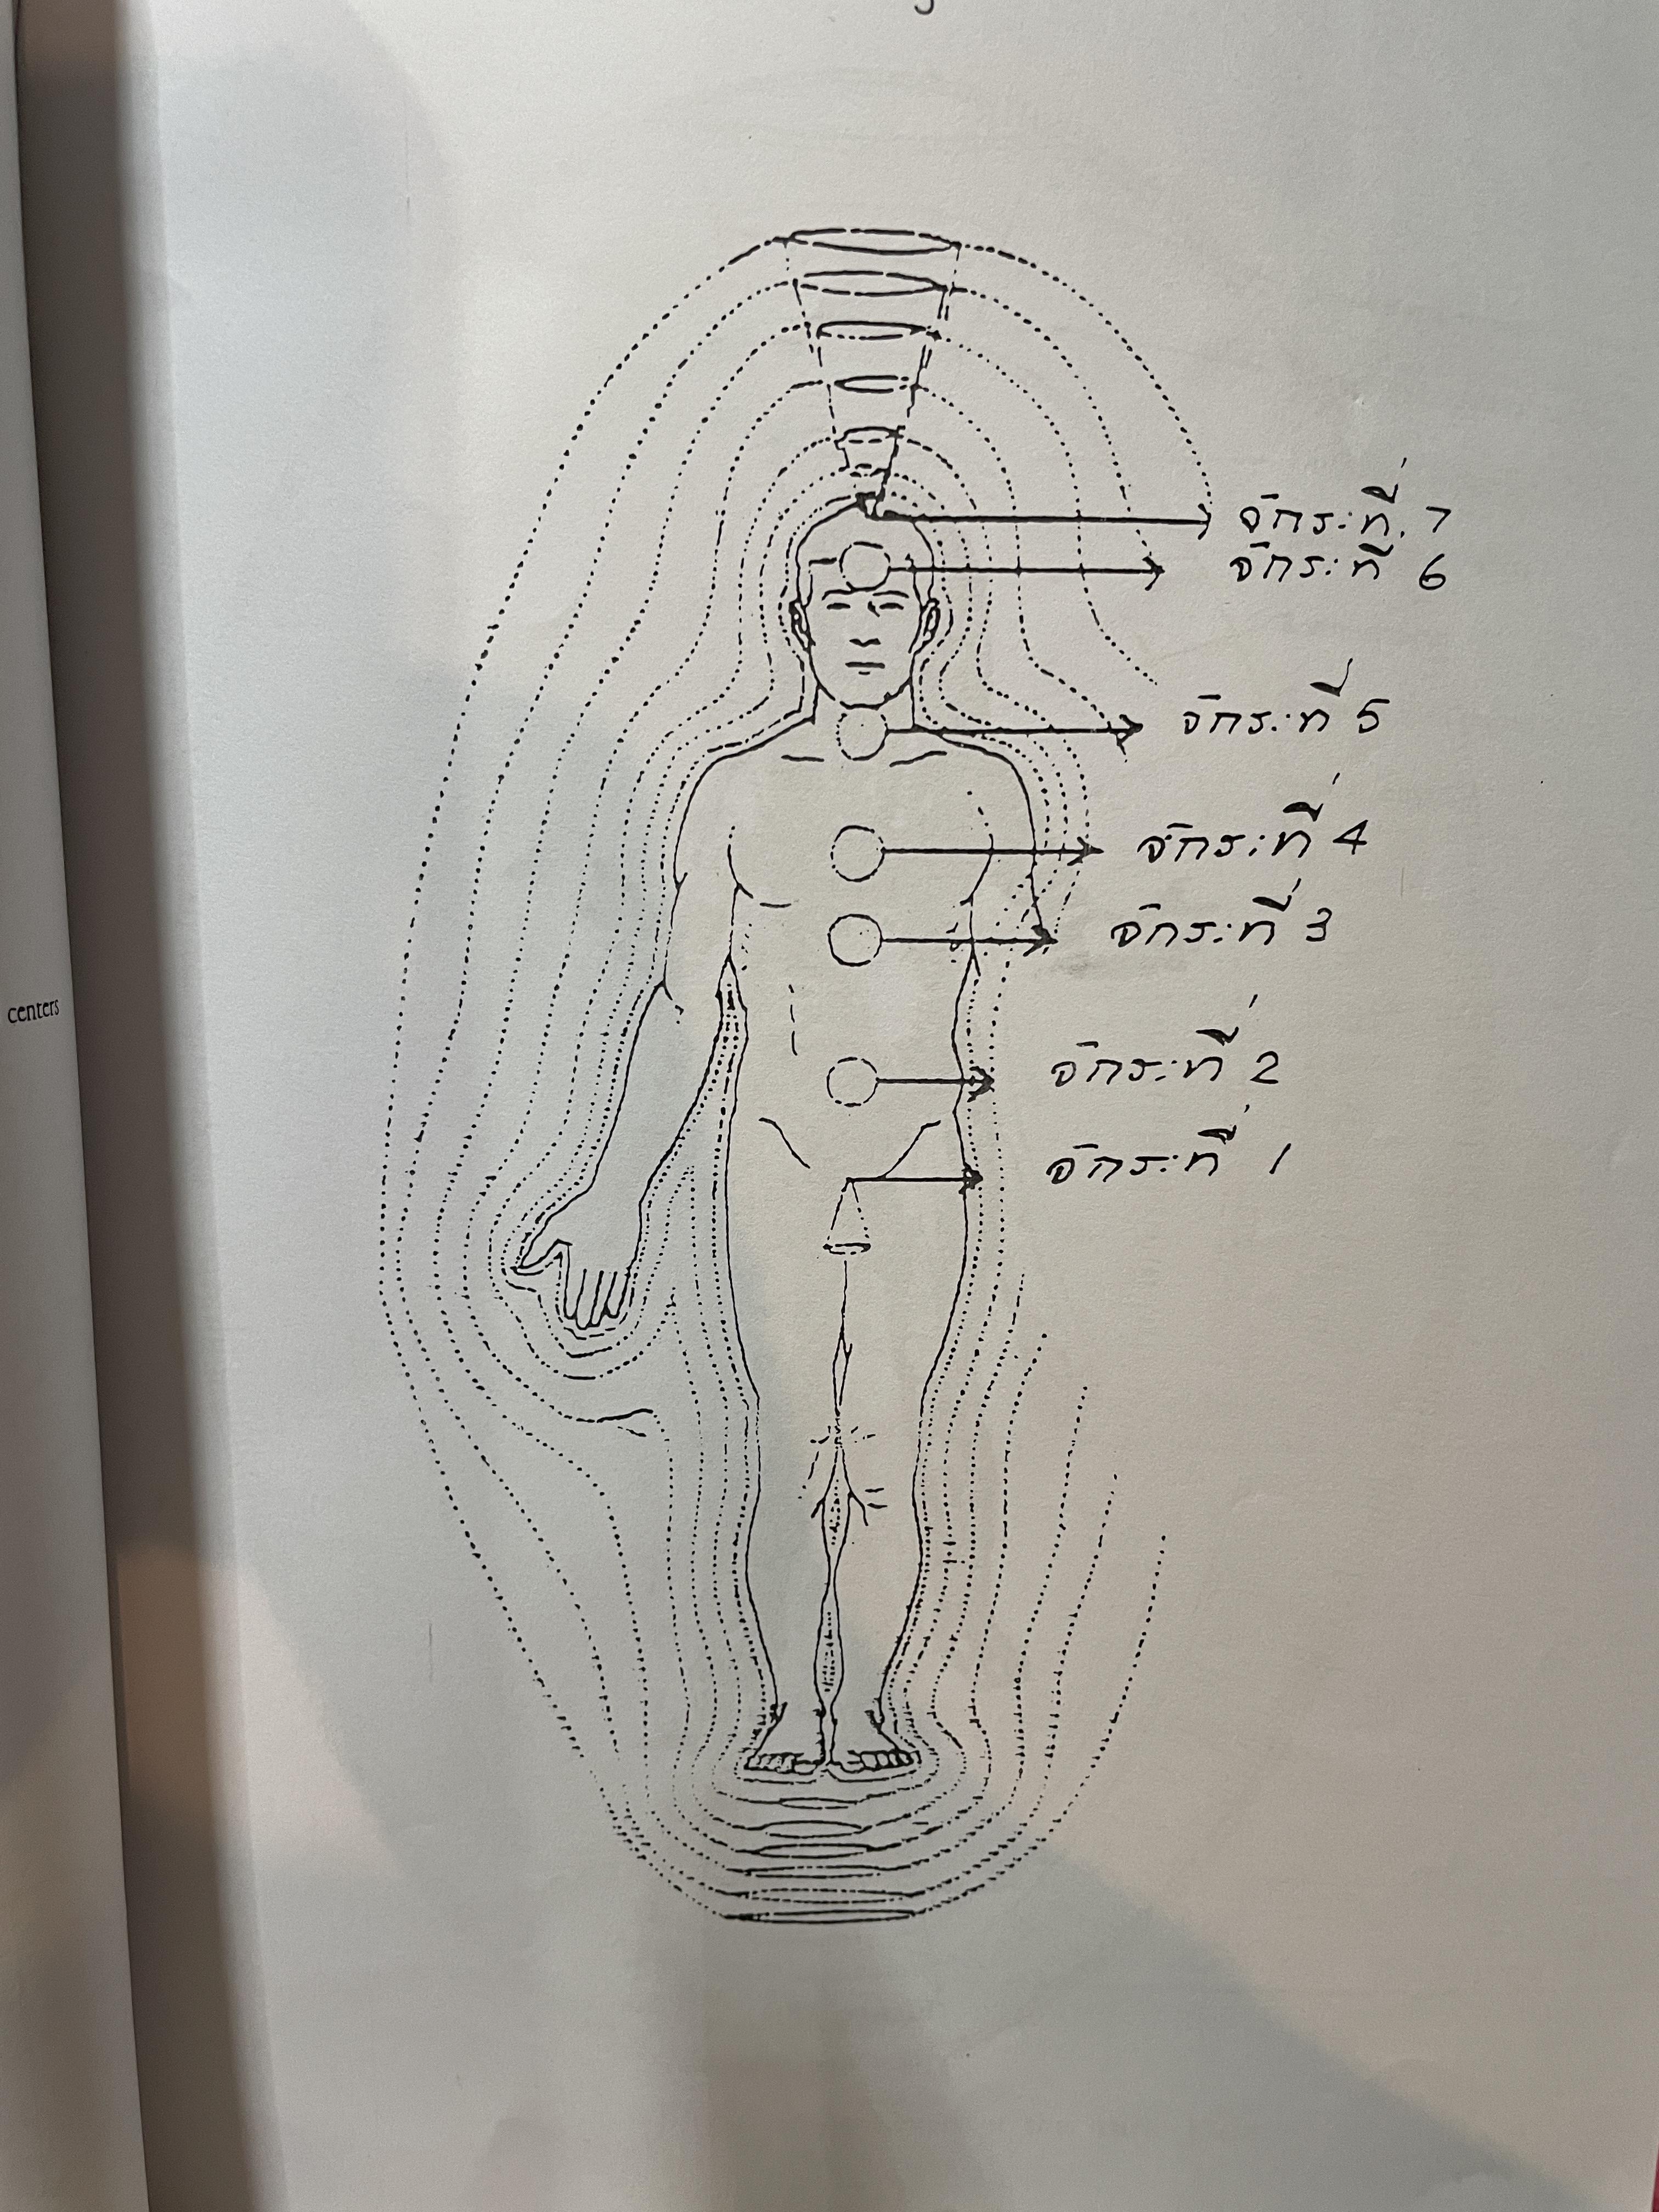 จักระที่ 7
จักระที่ 6
จักระที่ 5
จักระที่ 4
จักระที่ 3
centers
จักระที่ 2
จักระที่ 1